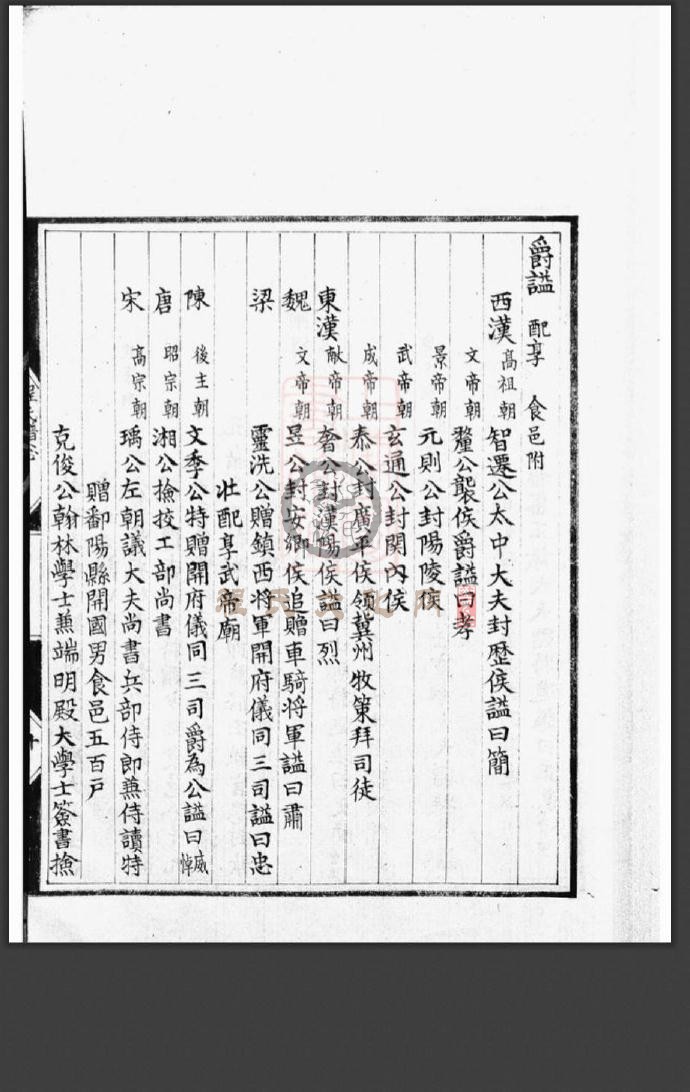 爵謚 配享 食邑附
西漢 高祖朝 智遷公太中大夫封歷侯謚曰簡
文帝朝 釐公襲侯爵謚曰孝
景帝朝 元則公封陽陵侯
武帝朝 玄通公封関內侯
成帝朝 㤗公封廣平侯領冀州牧策拜司徒
東漢 献帝朝 奢公封漢陽侯謚曰烈
魏 文帝朝 昱公封安鄉侯追贈車騎將軍謚曰肅
梁 靈洗公贈鎮西将軍開府儀同三司謚曰忠
壮配享武帝廟
陳 後主朝 文季公特贈開府儀同三司爵為公謚曰威悼
唐 昭宗朝 湘公撿挍工部尚書
宋 高宗朝 瑀公左朝議大夫尚書兵部侍郎蒹侍讀特
贈鄱陽縣開國男食邑五百戶
克俊公翰林學士蒹端明殿大學士簽書撿
程氏譜